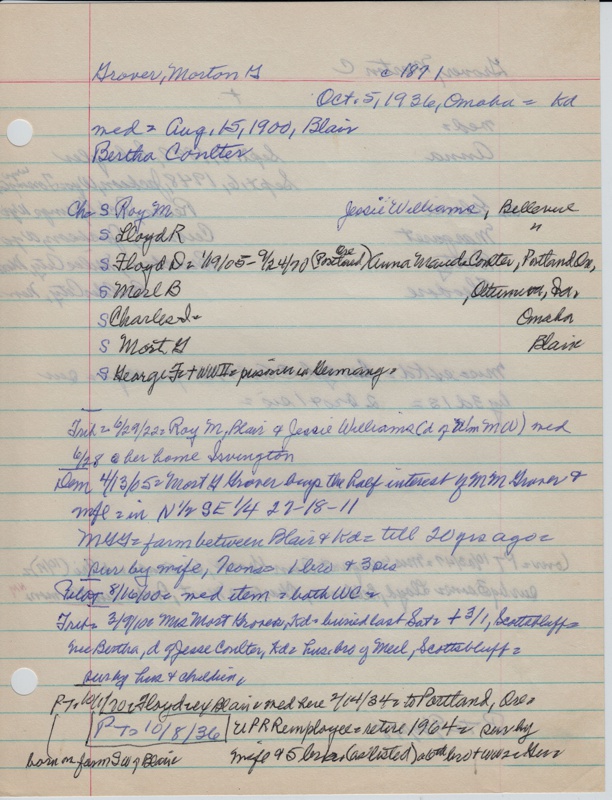 Grover, Morton G c 1871
Oct. 5, 1936, Omaha = Kd
med = Aug. 15, 1900, Blair
Bertha Coulter
Ch= S Roy M Jessie Williams, Bellevue
S Lloyd R "
S Floyd D = 1/19/05 - 9/24/70 (Portland Ore) Anna Maude Conter, Portland Ore,
S Merl B , Ottumwa, Ia,
S Charles I = Omaha
S Mort G Blair
S George F = + WWII = prisoner in Germany =
Trib = 6/29/22 = Roy M, Blair & Jessie Williams (d of Wm M W) med
6/28 @ her home Irvington
Dem 4/13/05 = Mort G Grover buys the half interest of M M Grover &
wife = in N 1/2 SE 1/4 27-18-11
MGG = farm between Blair & Kd = till 20 yrs ago =
sur by wife, 7 sons = 1 bro & 3 sis
Pilot 8/16/00 = med item = both WC =
Trib = 3/9/10 = Mrs Mort Grover, Kd = buried last Sat = + 3/1, Scottsbluff =
nee Bertha, d of Jesse Coulter, Kd = hus, bro of Merl, Scottsbluff =
sur by hus & children,
PT = 10/1/70 = Floyd rey Blair = med here 2/14/34 = to Portland, Ore =
PT = 10/8/36 UPRR employee = retire 1964 = sur by
born on farm SW of Blair wife & 5 bros (as listed) a 6th bro + WW2 = Ger =